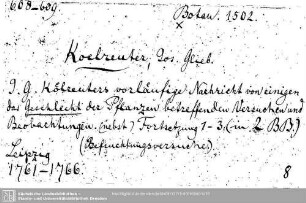 608-609.
Botan. 1502.
x
Koelreuter, Jos. Glieb.
J. G. Kölreuters vorläufige Nachricht von einigen
das Geschlecht der Pflanzen betreffenden Versuchen und
Beobachtungen. (nebst) Fortsetzung 1-3. (in 2 BB.)
(Befruchtungsversuche).
Leipzig
1761-1766.
8
Sächsische Landesbibliothek -
Staats- und Universitätsbibliothek Dresden